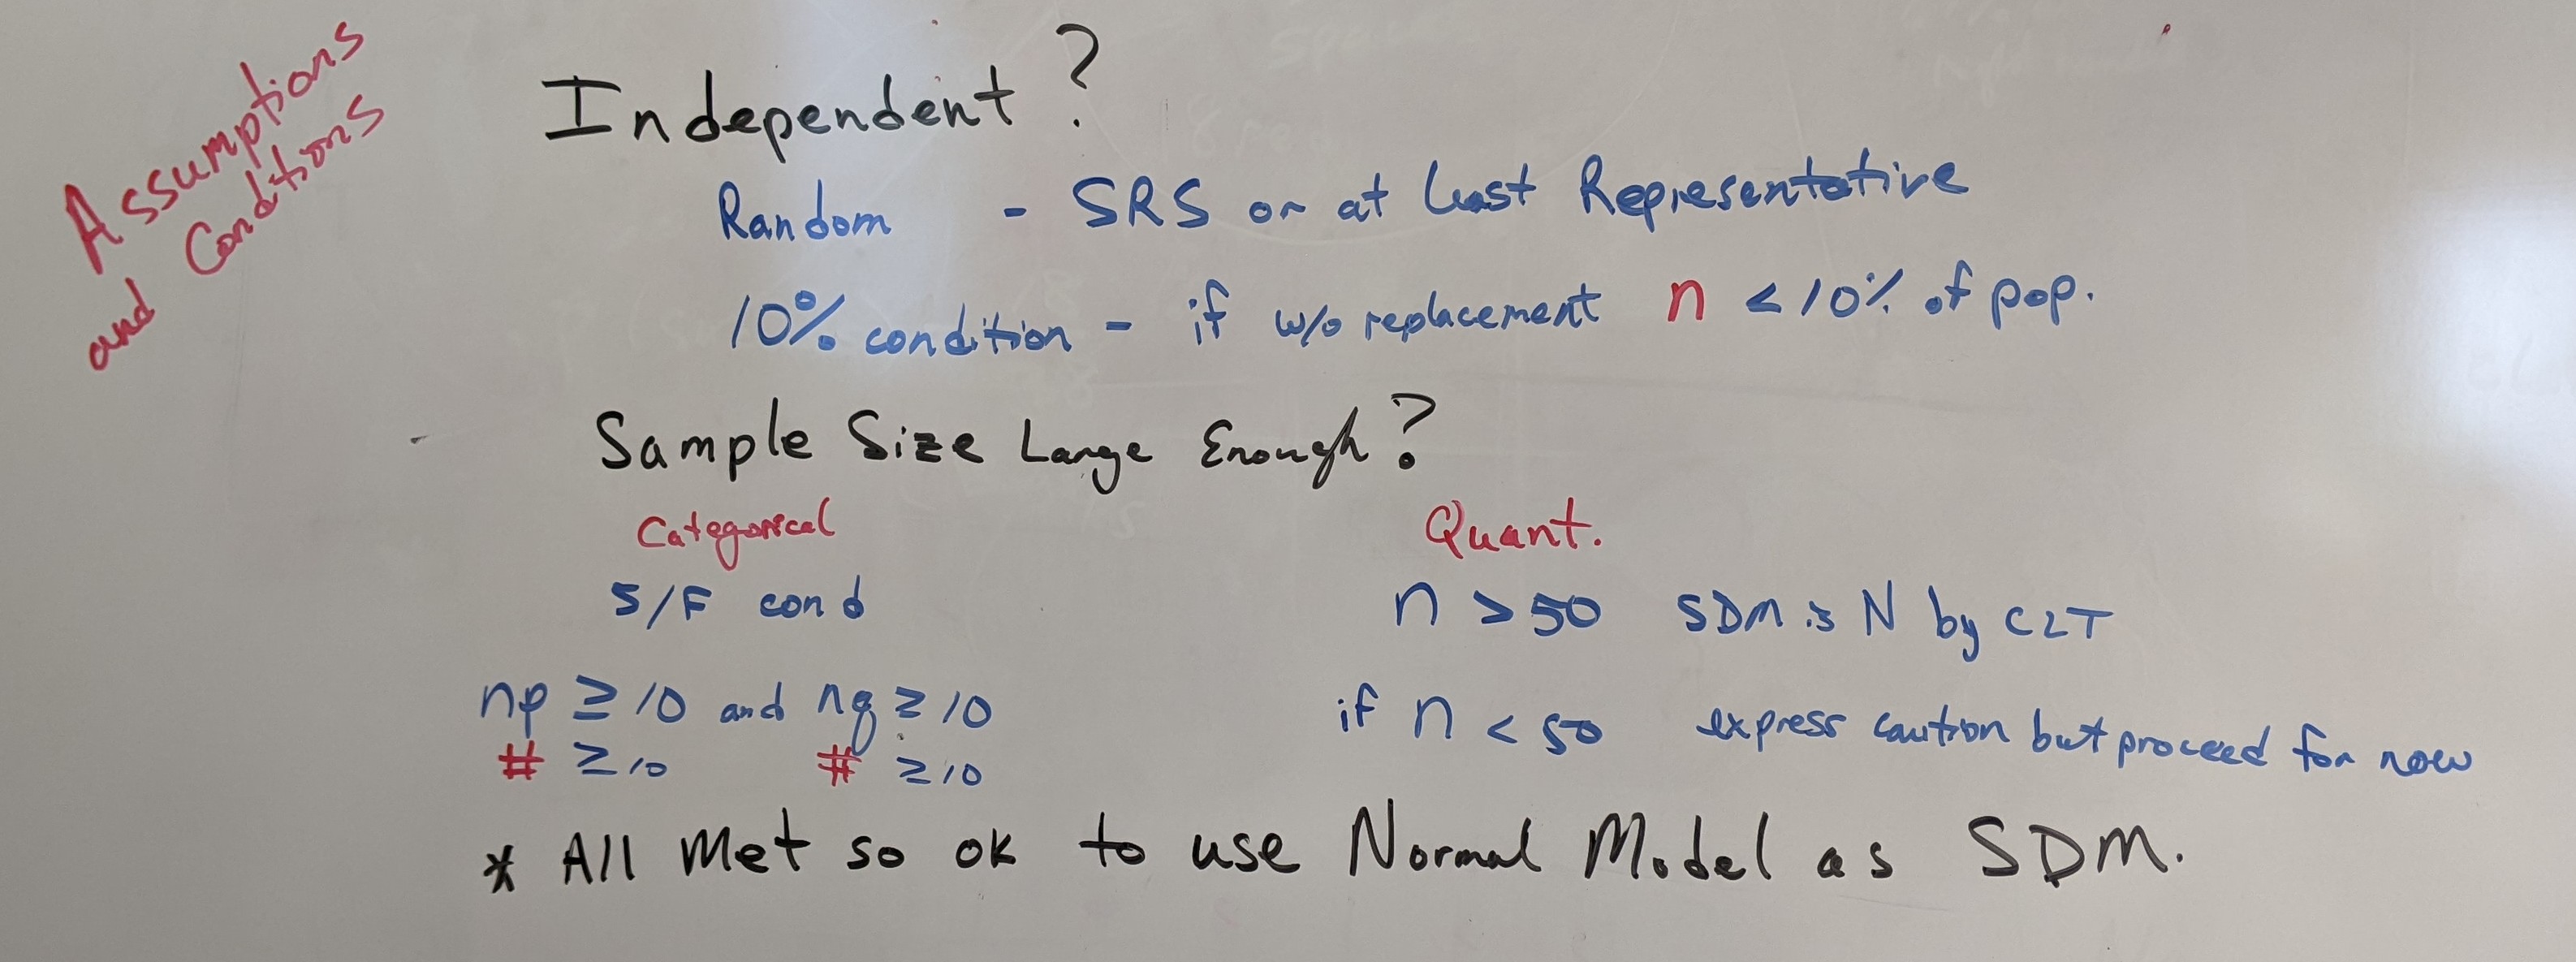 Assumptions
and Conditions
Independent?
Random - SRS or at least Representative
10% condition - if w/o replacement n < 10% of pop.
Sample Size Large Enough?
Categorical Quant.
S/F cond n > 50 SDM is N by CLT
np ≥ 10 and nq ≥ 10 if n < 50 express caution but proceed for now
# ≥ 10 # ≥ 10
* All Met so ok to use Normal Model as SDM.